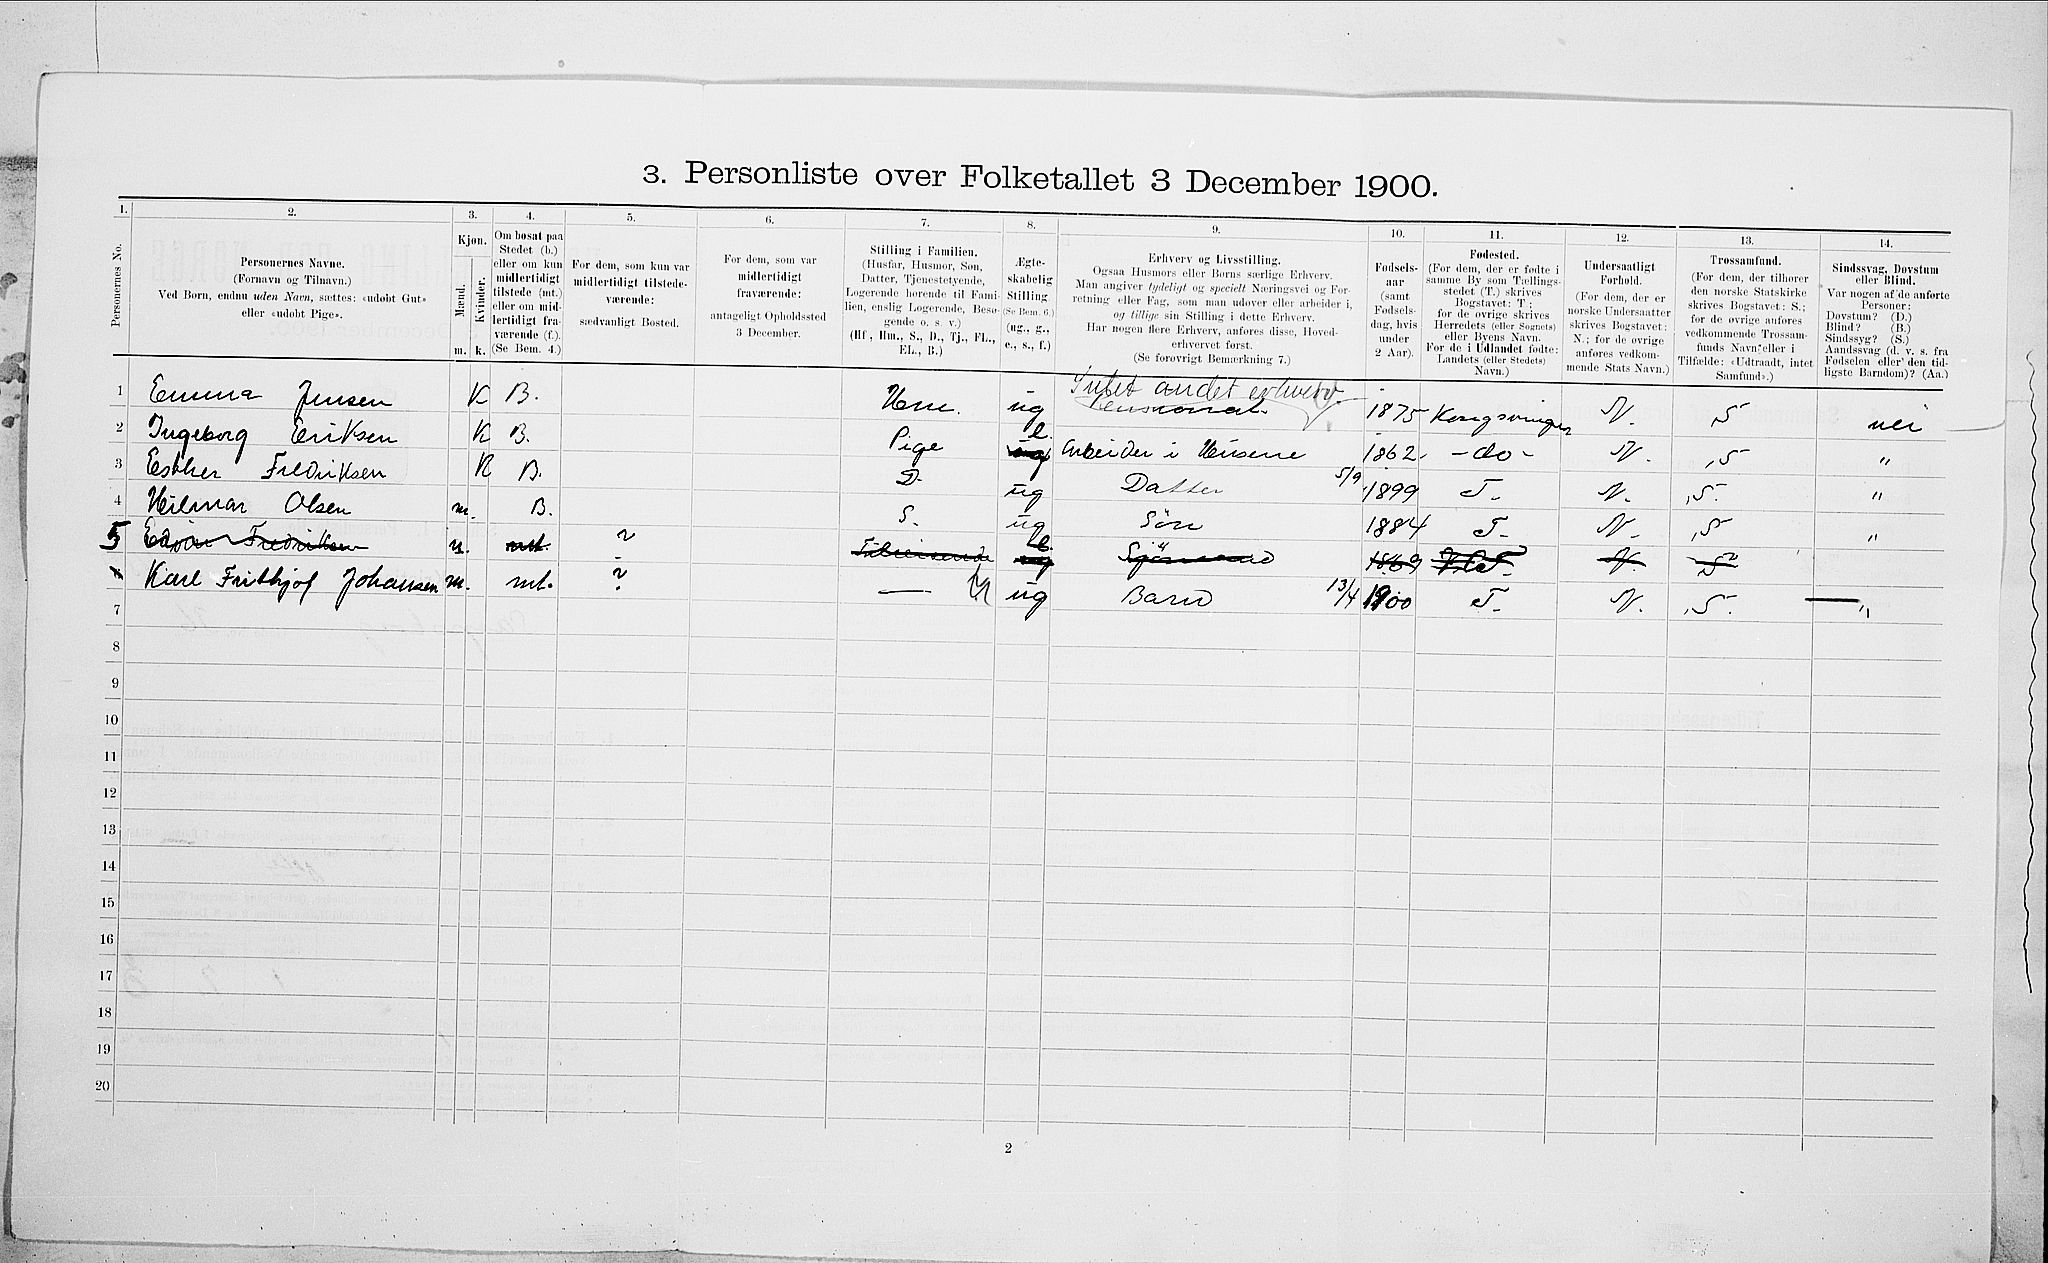 3. Personliste over Folketallet 3 December 1900.
1. 2. 3. 4. 5. 6. 7. 8. 9. 10. 11. 12. 13. 14.
Personernes No.
Personernes Navne.
(Fornavn og Tilnavn.)
Ved Børn, endnu uden Navn, sættes: «udøbt Gut»
eller «udøbt Pige».
Kjøn.
Mænd.
Kvinder.
m. k.
Om bosat paa
Stedet (b.)
eller om kun
midlertidigt
tilstede (mt.)
eller om mid-
lertidigt fra-
værende (f.).
(Se Bem. 4.)
For dem, som kun var
midlertidigt tilstede-
værende:
sædvanligt Bosted.
For dem, som var
midlertidigt
fraværende:
antageligt Opholdssted
3 December.
Stilling i Familien.
(Husfar, Husmor, Søn,
Datter, Tjenestetyende,
Logerende hørende til Fami-
lien, enslig Logerende, Besø-
gende o. s. v.)
(Hf., Hm., S., D., Tj., FL.,
EL., B.)
Ægte-
skabelig
Stilling
(Se Bem. 6.)
(ug., g.,
e., s., f.)
Erhverv og Livsstilling.
Ogsaa Husmors eller Børns særlige Erhverv.
Man angiver tydeligt og specielt Næringsvei og For-
retning eller Fag, som man udøver eller arbeider i,
og tillige sin Stilling i dette Erhverv.
Har nogen flere Erhverv, anføres disse, Hoved-
erhvervet først.
(Se forøvrigt Bemærkning 7.)
Fødsels-
aar
(samt
Fødsels-
dag, hvis
under
2 Aar).
Fødested.
(For dem, der er fødte i
samme By som Tællings-
stedet (T.) skrives
Bogstavet: T.;
for de øvrige skrives
Herredets (eller Sognets)
eller Byens Navn.
For de i Udlandet fødte:
Landets (eller Stedets)
Navn.)
Undersaatligt
Forhold.
(For dem, der er
norske Undersaatter
skrives Bogstavet:
N.; for de øvrige
anføres vedkom-
mende Stats Navn.)
Trossamfund.
(For dem, der tilhører
den norske Statskirke
skrives Bogstavet: S.;
for de øvrige anføres
vedkommende Trossam-
funds Navn eller i
Tilfælde: «Udtraadt, intet
Samfund».)
Sindssvag, Døvstum
eller Blind.
Var nogen af de anførte
Personer:
Døvstum? (D.)
Blind? (B.)
Sindssyg? (S.)
Aandssvag (d. v. s. fra
Fødselen eller den tid-
ligste Barndom)? (Aa.)
Intet andet erhverv.
1 Emma Jensen K B. Hm. ug Pensionat 1875 Kongsvinger N. S nei
2 Ingeborg Eriksen K B. Pige ug e. Arbeider i Husene 1862. -do- N. S "
3 Esther Fredriksen K B. D. ug Datter 5/9 1899 T. N. S. "
4 Hilmar Olsen m. B. S. ug Søn 1884 T. N. S "
5 Edvar Fredriksen m. mt. ? Tilreisende ug e. Sjømand 1869 N. S
Karl Frithjof Johansen m. mt. ? — ug Barn 13/4 1900 T. N. S. "
7
8
9
10
11
12
13
14
15
16
17
18
19
20
2